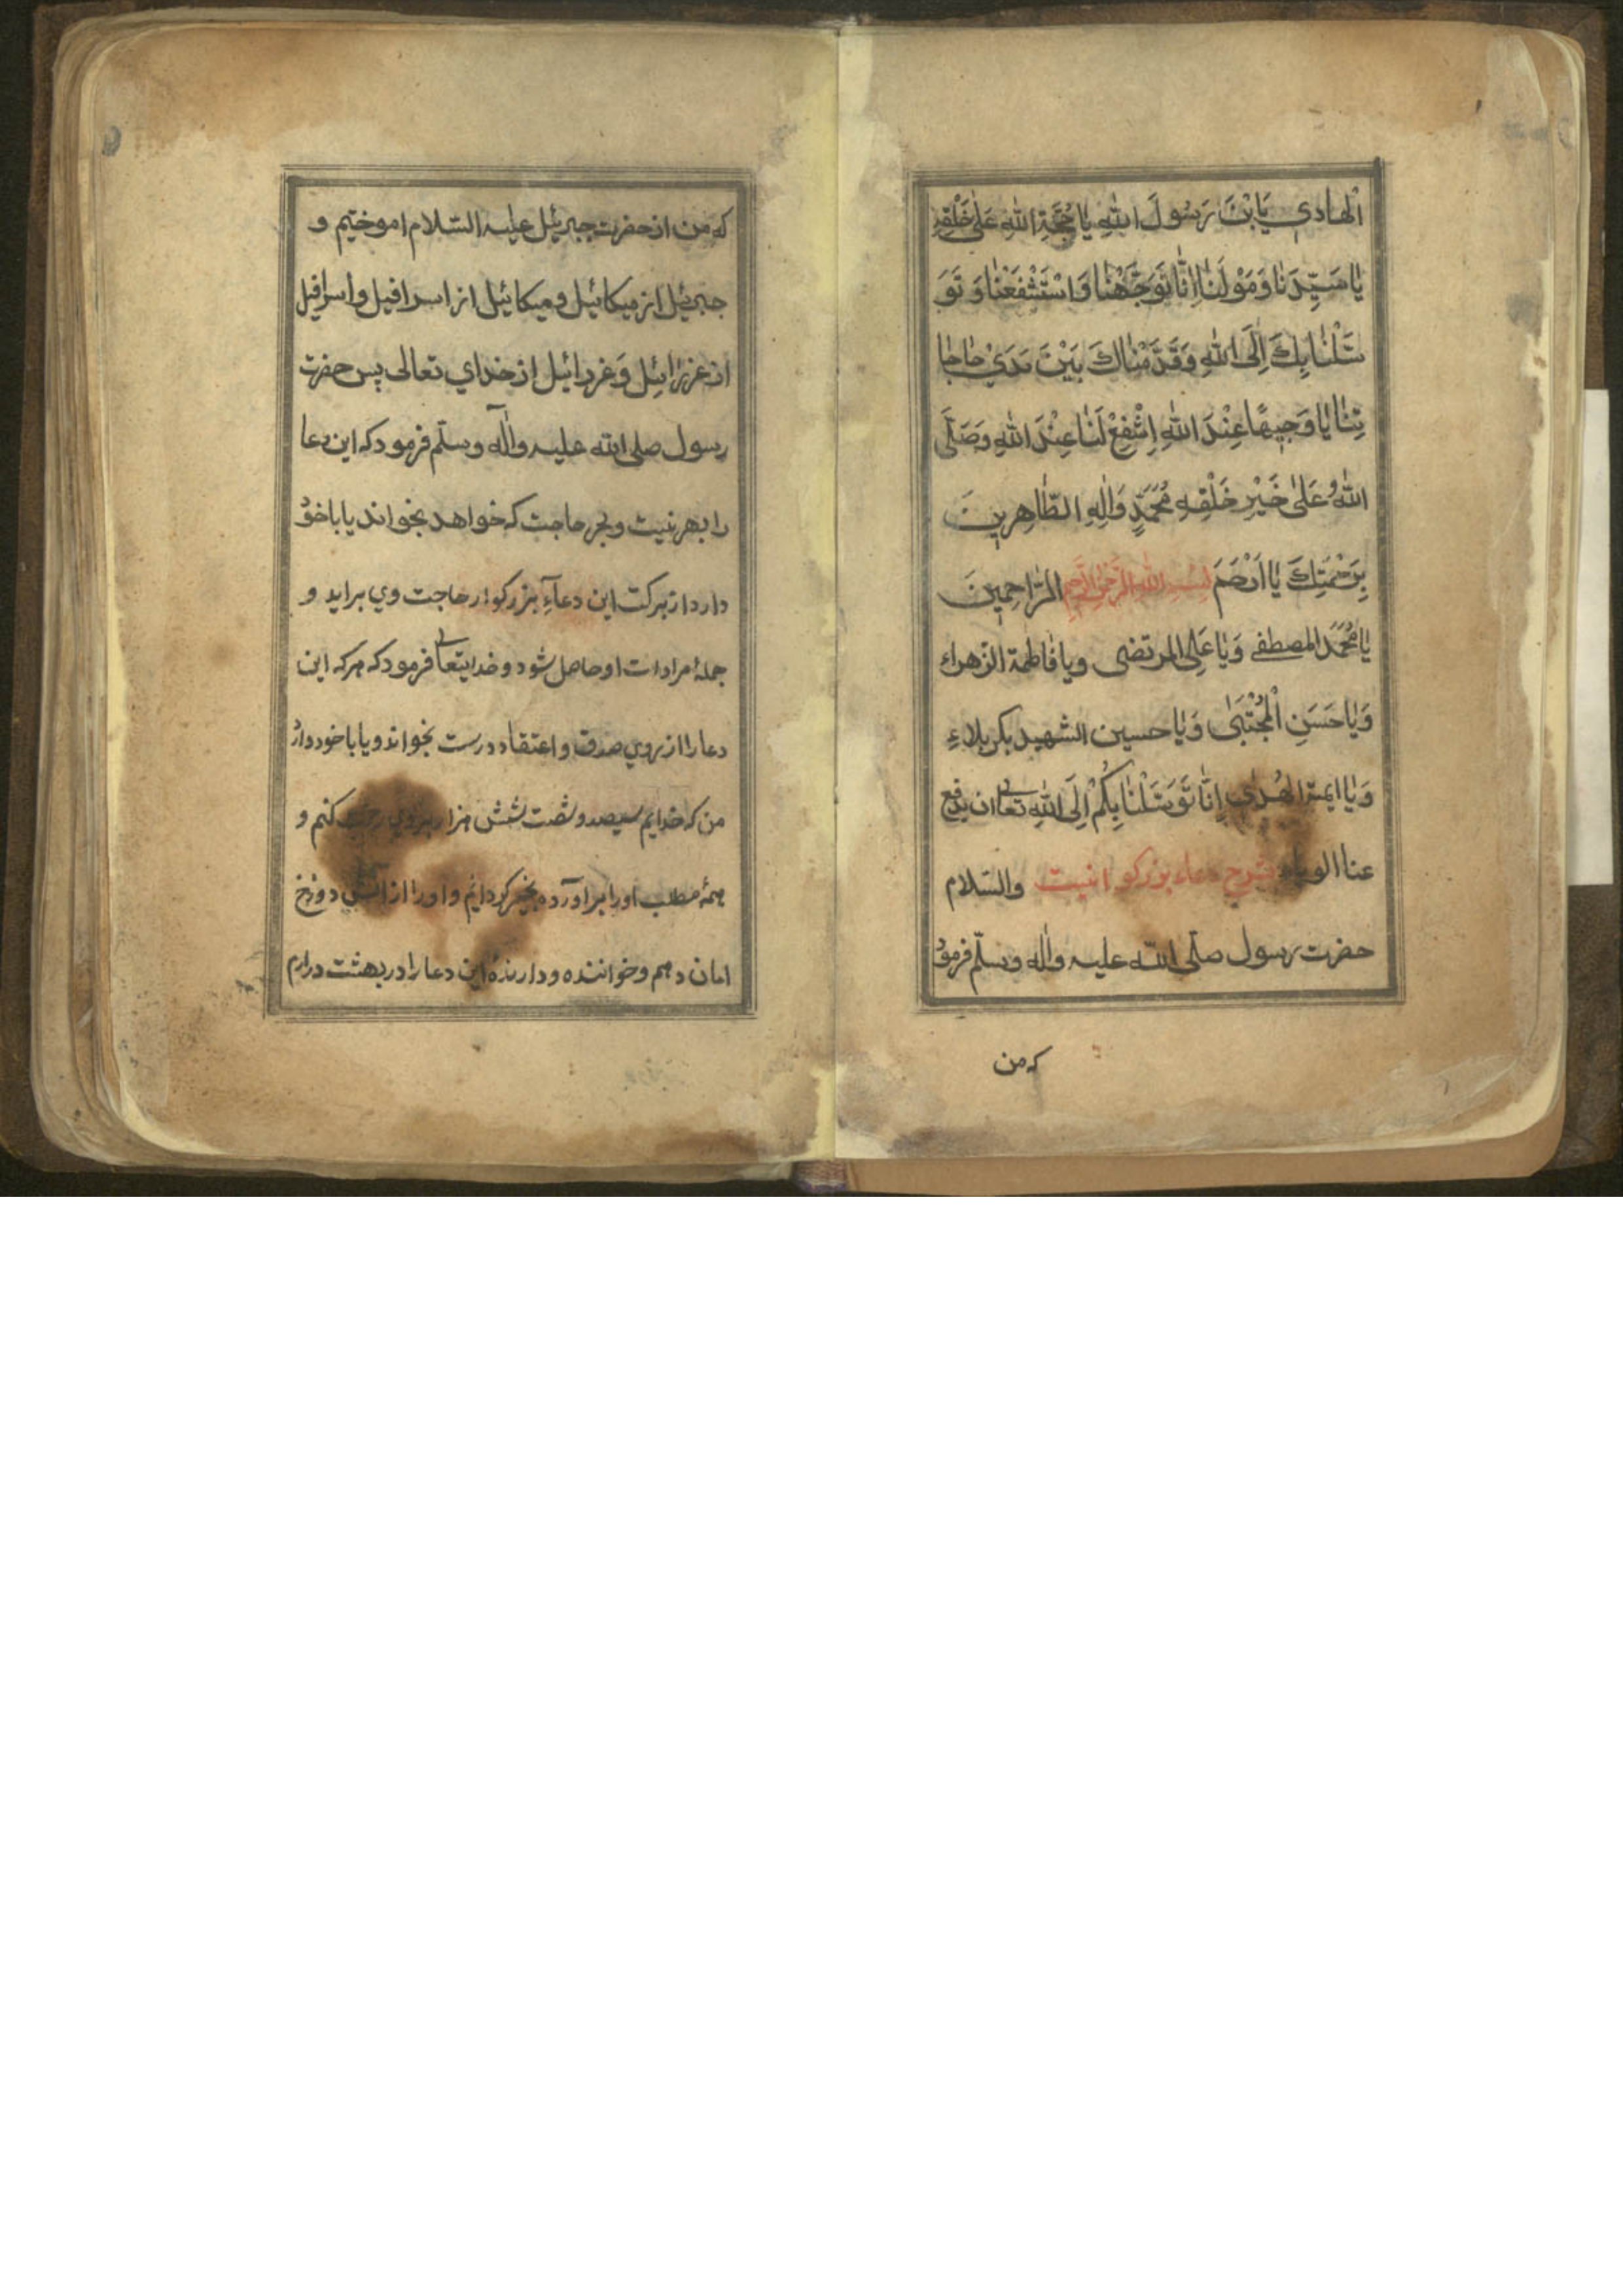 اَلْهادي يَابْنَ رَسُولَ اللّٰهِ يا حُجَّةَ اللّٰهِ عَلىٰ خَلْقِهِ
يٰا سَيِّدَنٰا وَمَوْلٰنٰا اِنّٰا تَوَجَّهْنٰا وَاسْتَشْفَعْنٰا وَ تَوَ
سَّلْنٰا بِكَ اِلَى اللّٰهِ وَقَدَّمْنٰاكَ بَيْنَ يَدَيْ حٰاجٰا
تِنٰا يٰا وَجيهًا عِنْدَ اللّٰهِ اِشْفَعْ لَنٰا عِنْدَ اللّٰهِ وَصَلَّى
اللّٰهُ عَلىٰ خَيْرِ خَلْقِهِ مُحَمَّدٍ وَاٰلِهِ الطّٰاهِرينَ
بِرَحْمَتِكَ يٰا اَرْحَمَ بِسْمِ اللّٰهِ الرَّحْمٰنِ الرَّحيمِ الرّٰاحِمينَ
يٰا مُحَمَّدَ المصطفے وَيٰا عَلِى المرتضى ويا فٰاطمة الزهراء
وَيٰا حَسَنِ الْمُجْتَبىٰ وَيٰا حسين الشهيد بكربلاءِ
وَيٰا ايمة الهُدىٰ اِنّٰا تَوَسَّلْنٰا بِكُمْ اِلَى اللّٰهِ تعالى ان يدفع
عنا الوباء شرح دعاء بزرکوا اینست والسّلام
حضرت رسول صلّى اللّٰه عليه واٰله وسلّم فرمود
که من
که من از حضرت جبرئیل علیه السّلام اموختیم و
جبرئیل از میکائیل و میکائیل از اسرافیل و اسرافیل
از عزرائیل وَ عزرائیل از خداي تعالى پس حضرت
رسول صلى اللّه عليه واٰله وسلّم فرمود که این دعا
را بهر نیت و بهر حاجت که خواهد بخواند یا با خود
دارد از برکت این دعآءِ بزرکوار حاجت وي براید و
جملۀ مرادات او حاصل شود و خدایتعالى فرمود که هرکه این
دعا را از روي صدق و اعتقاد درست بخواند و یا با خود دارد
من که خدایم سیصد و شصت شش هزار بروي رحمت کنم و
همۀ مطلب او را براورده بخیر کردانم و او را از اتش دوزخ
امان دهم و خواننده و دارندۀ این دعا را در بهشت درارم